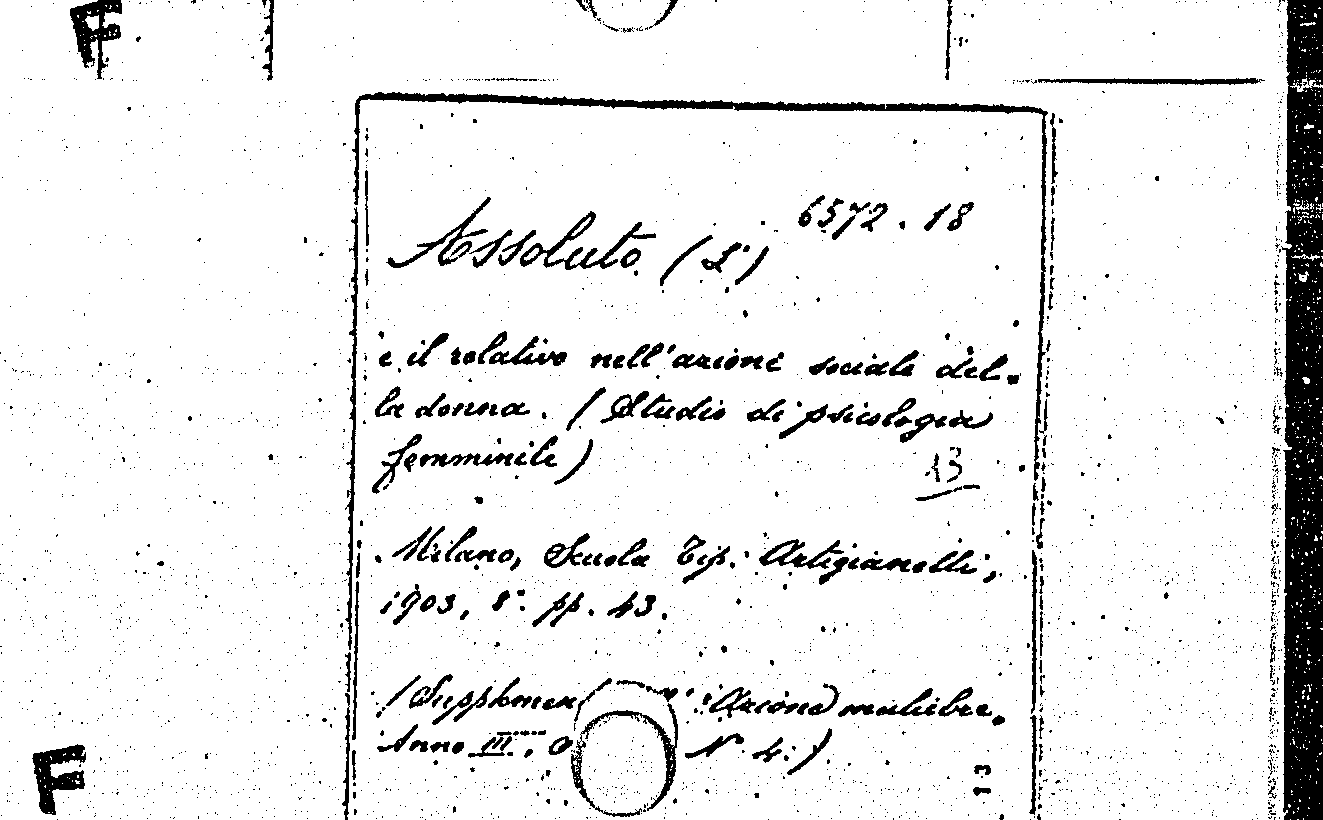 F
6572.18
Assoluto (L')
e il relativo nell'azione sociale del-
la donna. (Studio di psicologia
femminile)
13
Milano, Scuola Tip. Artigianelli,
1903, 8°. pp. 43.
(Supplemen Azione muliebre.
Anno III, N. 4.)
F
13